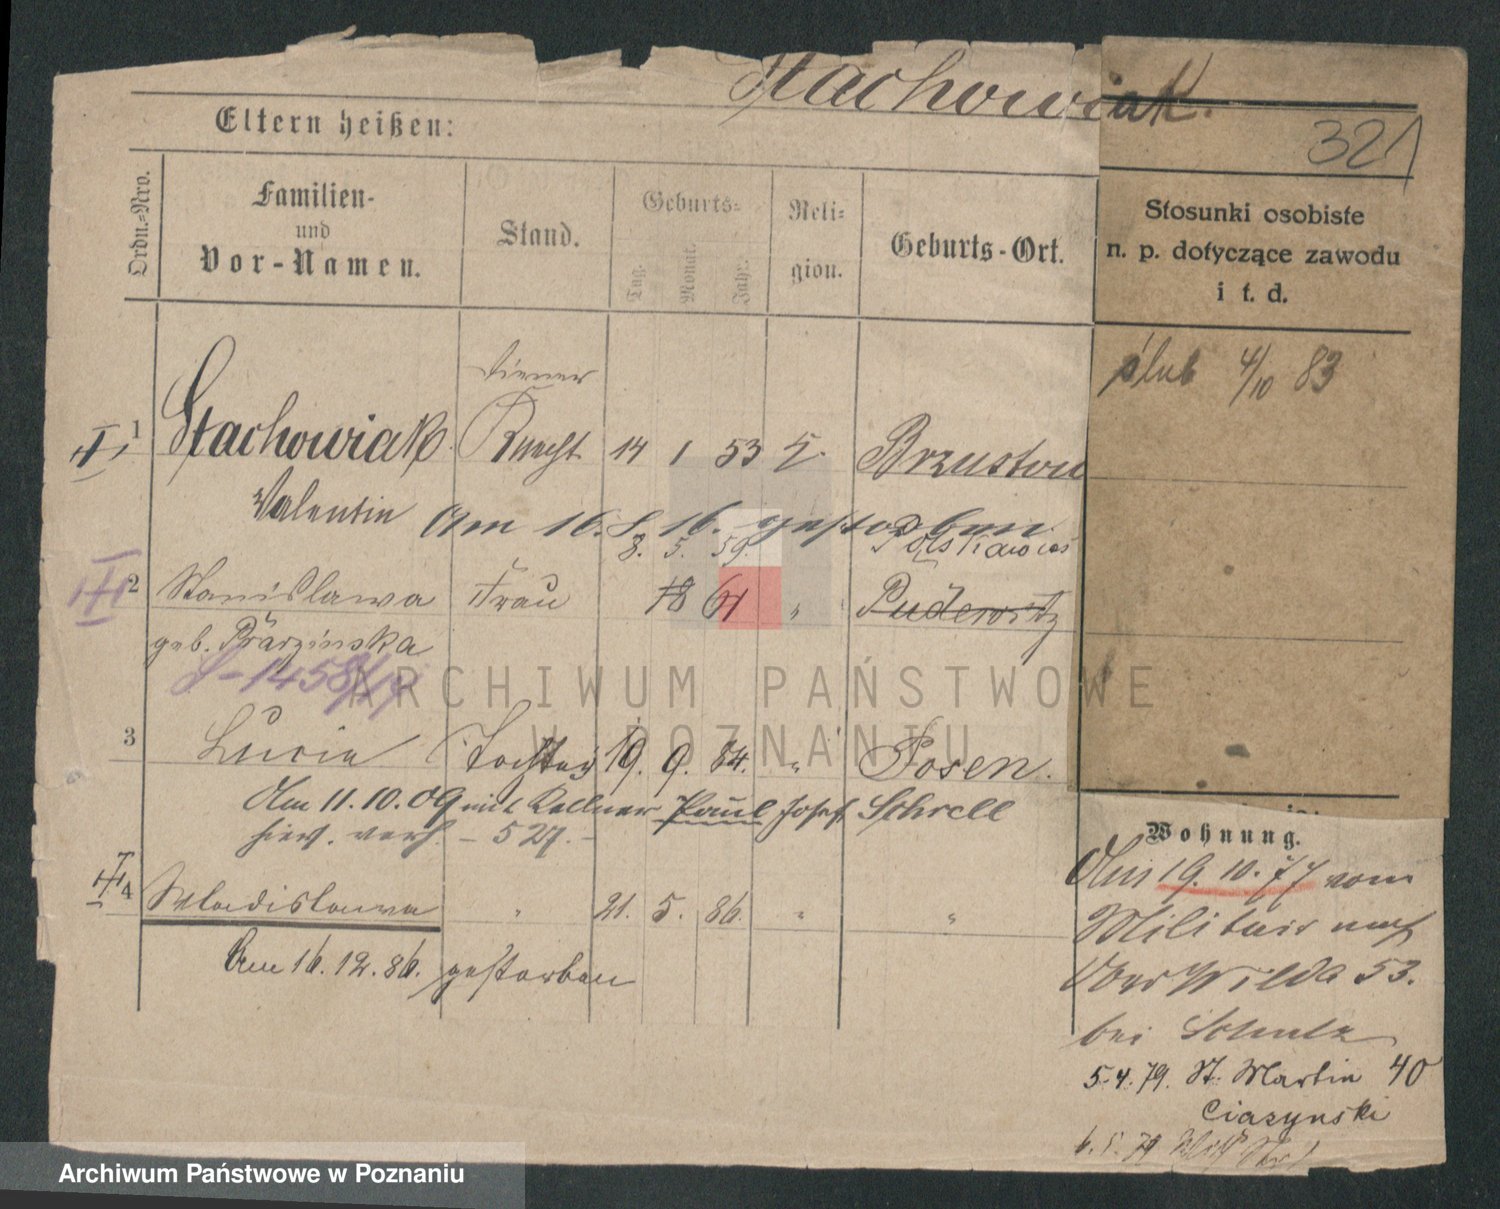 Stachowiak.
321
Eltern heißen:
Ordn.-Nro.
Familien-
und
Vor-Namen.
Stand.
Geburts-
Tag.
Monat.
Jahr.
Reli-
gion.
Geburts-Ort.
Stosunki osobiste
n. p. dotyczące zawodu
i t. d.
ślub 4/10 83
Diener
1 Stachowiak Knecht 14 1 53 Brzustow
Valentin Am 16. 8. 16. gestorben
8. 5. 59.
2 Stanislawa Frau 18 61 " Pudewitz
geb.
3 Lucie Tochter 19. 9. 84. " Posen.
Am 11.10.09 mit Kellner Paul Josef Schrell
hier. verh. - 527. -
4 Wladislawa " 21. 5. 86. " "
Am 16.12.86. gestorben
Wohnung.
Am 19.10.77 vom
Militair nach
Ober Wilda 53.
bei Schulz
5.4.79. St. Martin 40
Ciazynski
ARCHIWUM PAŃSTWOWE
W POZNANIU
Archiwum Państwowe w Poznaniu